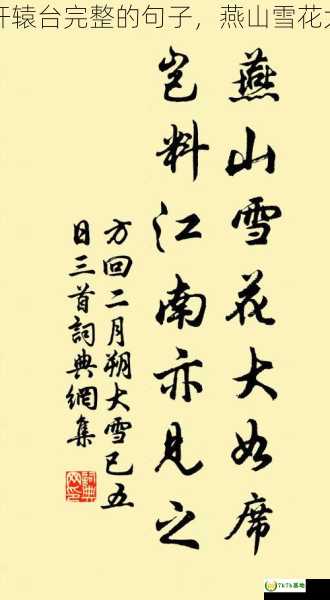 轩辕台完整的句子，燕山雪花大
燕山雪花大如席
岂料江南亦见之
方回二月朔大雪已五
日三首詞典網集
詞典
网印
7k7k基地